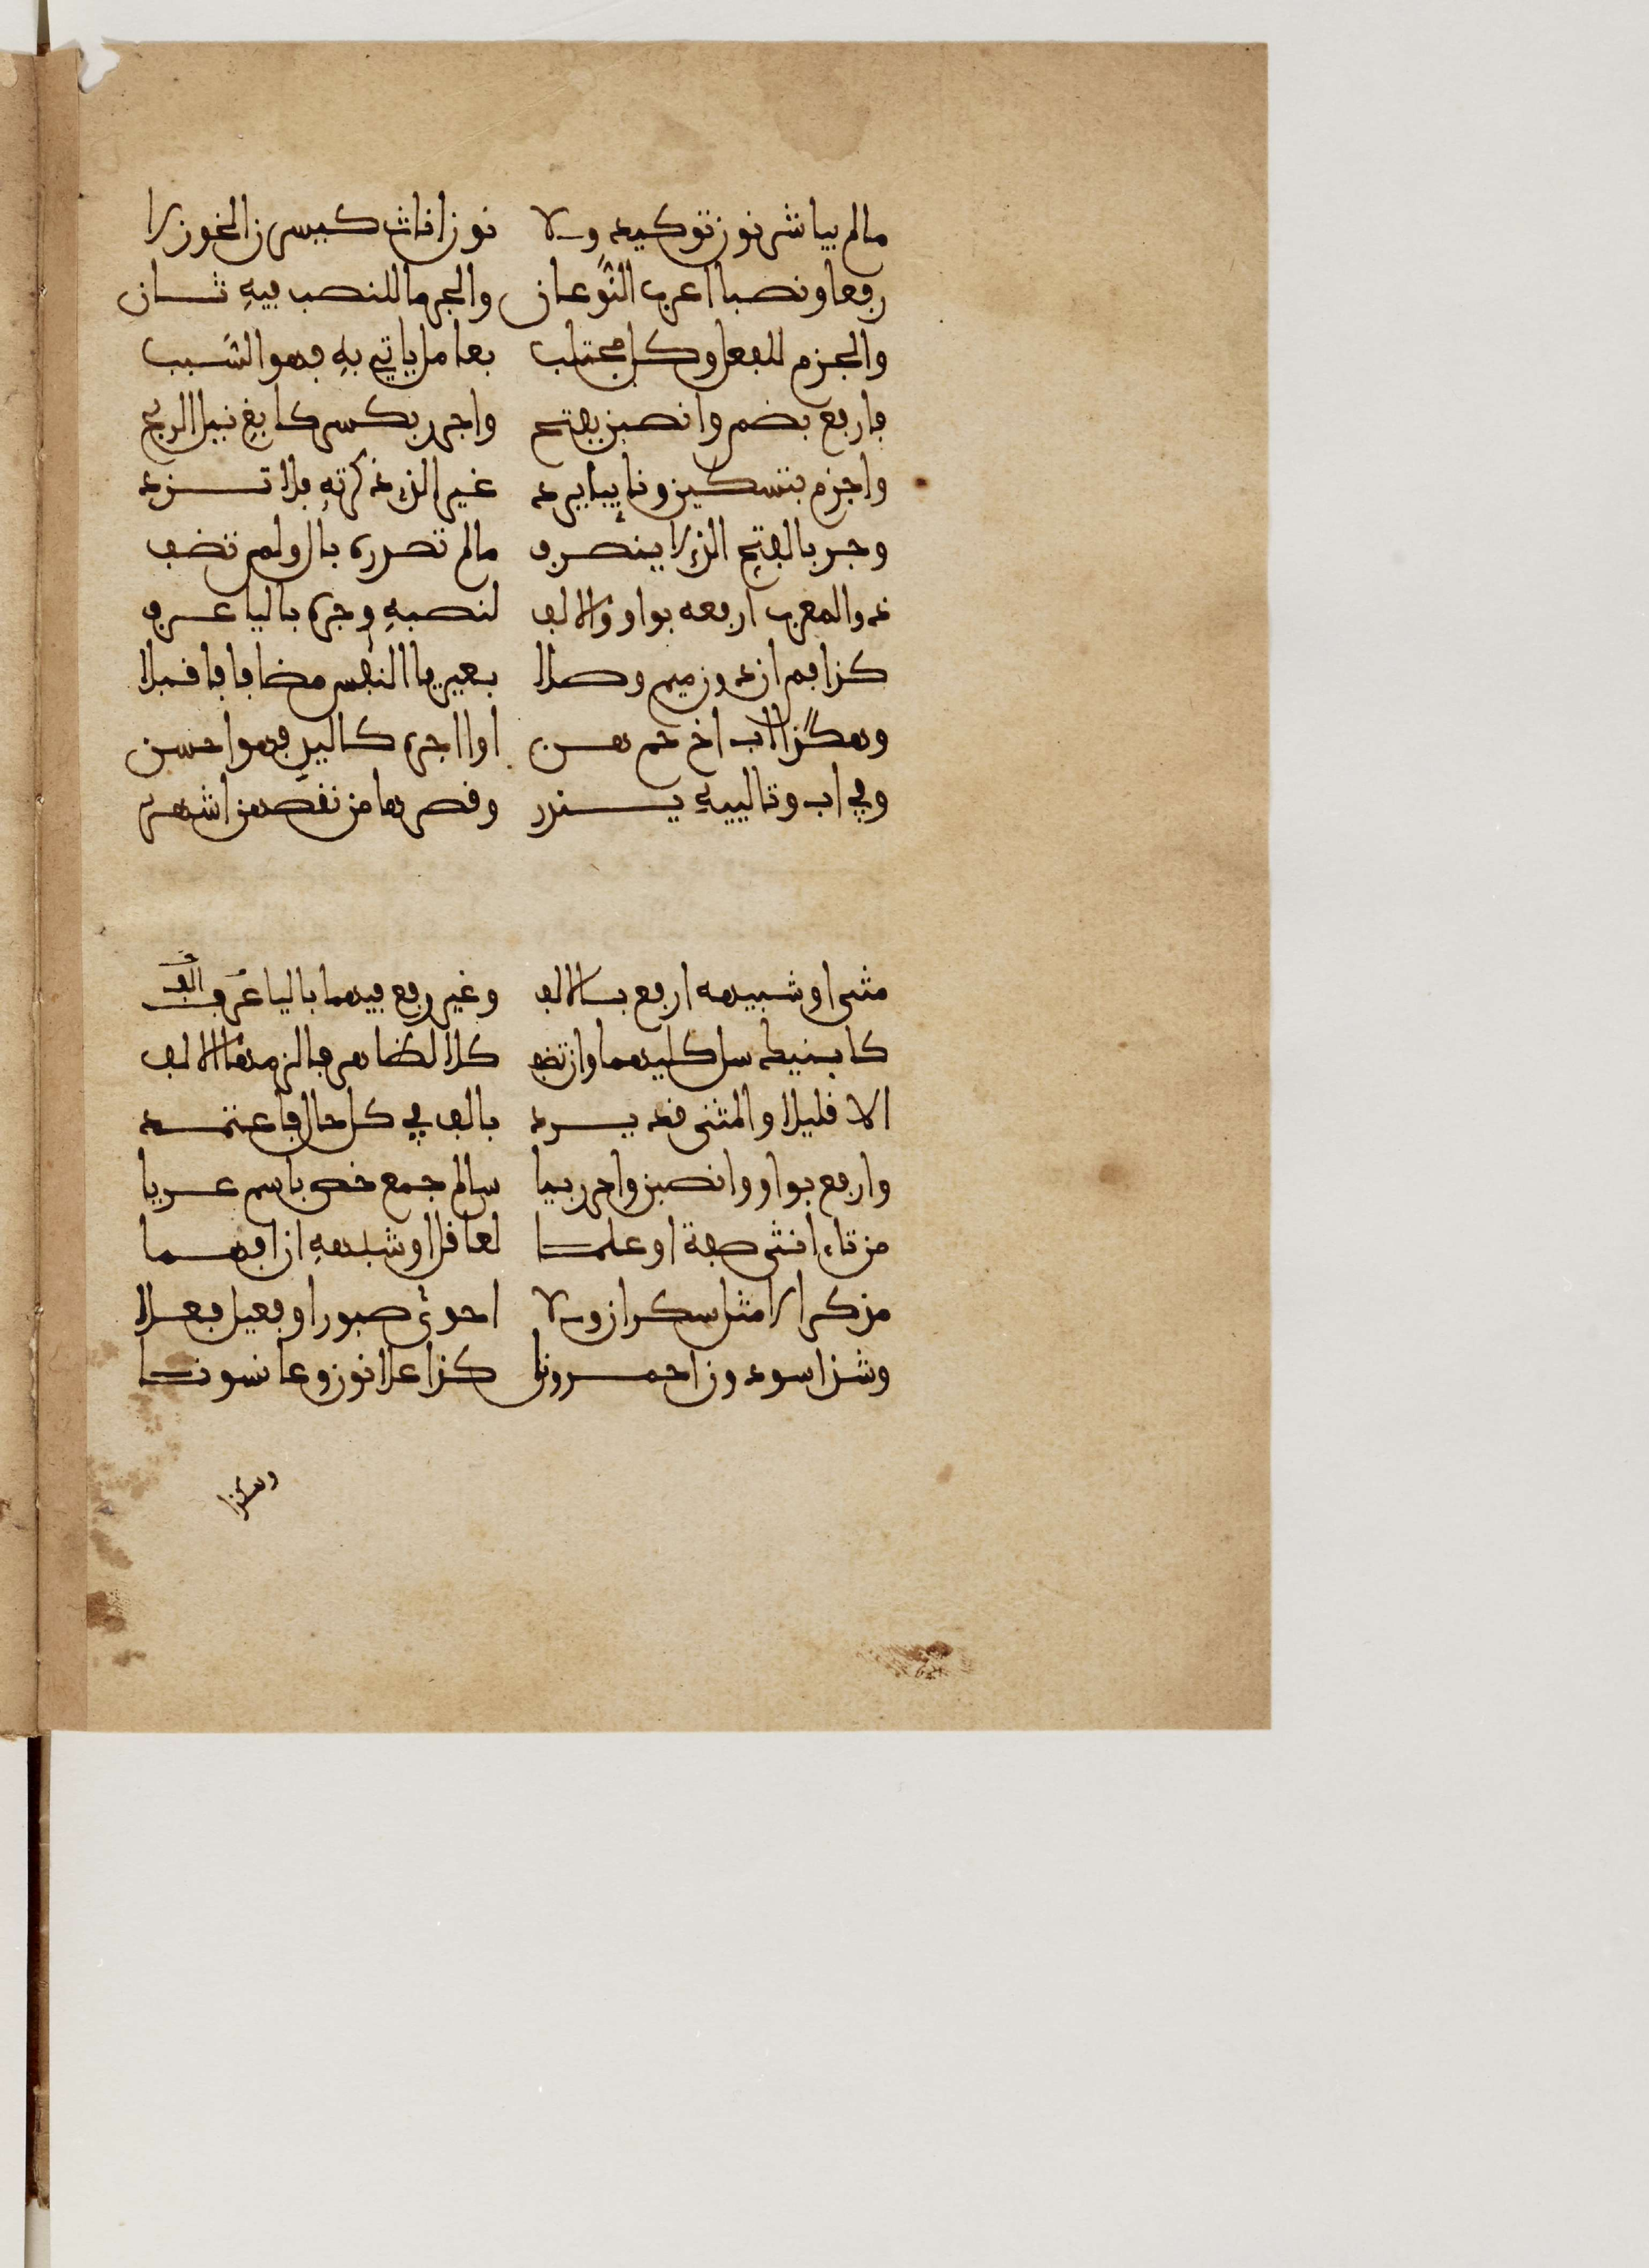 مالم يباشر نون توكيد ولا نون اناث كيسرن الخود لا
رفعا ونصبا اعرب النوعان والجر ما للنصب فيه ثان
والجزم للفعل وكل مجتلب بعامل ياتي به فهو السبب
فارفع بضم وانصبن بفتح واجرر بكسر كابغ نيل الربح
واجزم بتسكين ونايبا يرد غير الذي ذكرته فلا تزد
وجر بالفتح الذي لا ينصرف مالم تصدره بال ولم تضف
ذو المعرب ارفعه بواو والالف لنصبه وجره باليا عرف
كذا فم ان دون ميم وصلا بغير يا النفس مضافا فاقبلا
وهكذا اب اخ حم هن او اجره كاليد فهو احسن
وفي اب وتالييه يندر وقصرها من نقصهن اشهر
مثنى او شبيهه ارفع بالالف وغير رفع فيهما باليا عرف الف
كابنيك سل كليهما وان تضف كلا لظاهر فالزمنها الالف
الا قليلا والمثنى قد يرد بالف في كل حال فاعتمد
وارفع بواو وانصبن واجرر بيا سالم جمع خص باسم عريا
من تاء انثى صفة او علما لعاقل او شبهه ان افهما
مذكرا لا مثل سكران ولا احوى صبور او فعيل فعلا
وشذ اسودون احمرونا كذا علانون وعانسونا
وهكذا